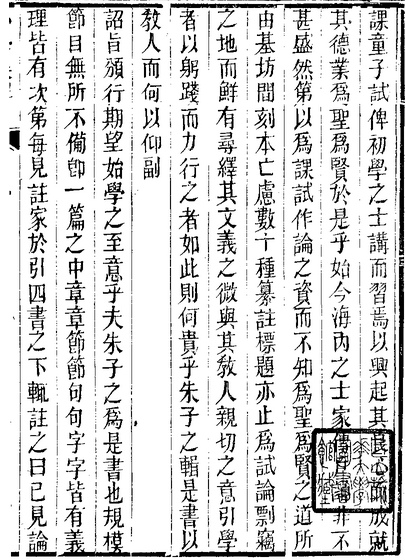 課童子試俾初學之士講而習焉以興起其良心而成就
其德業爲聖爲賢於是乎始今海內之士家傳非不
甚盛然第以爲課試作論之資而不知爲聖爲賢之道所
由基坊間刻本亡慮數十種纂註標題亦止爲試論剽竊
之地而鮮有尋繹其文義之微與其敎人親切之意引學
者以躬踐而力行之者如此則何貴乎朱子之輯是書以
敎人而何以仰副
詔旨頒行期望始學之至意乎夫朱子之爲是書也規模
節目無所不備卽一篇之中章章節節句句字字皆有義
理皆有次第每見註家於引四書之下輒註之曰已見論